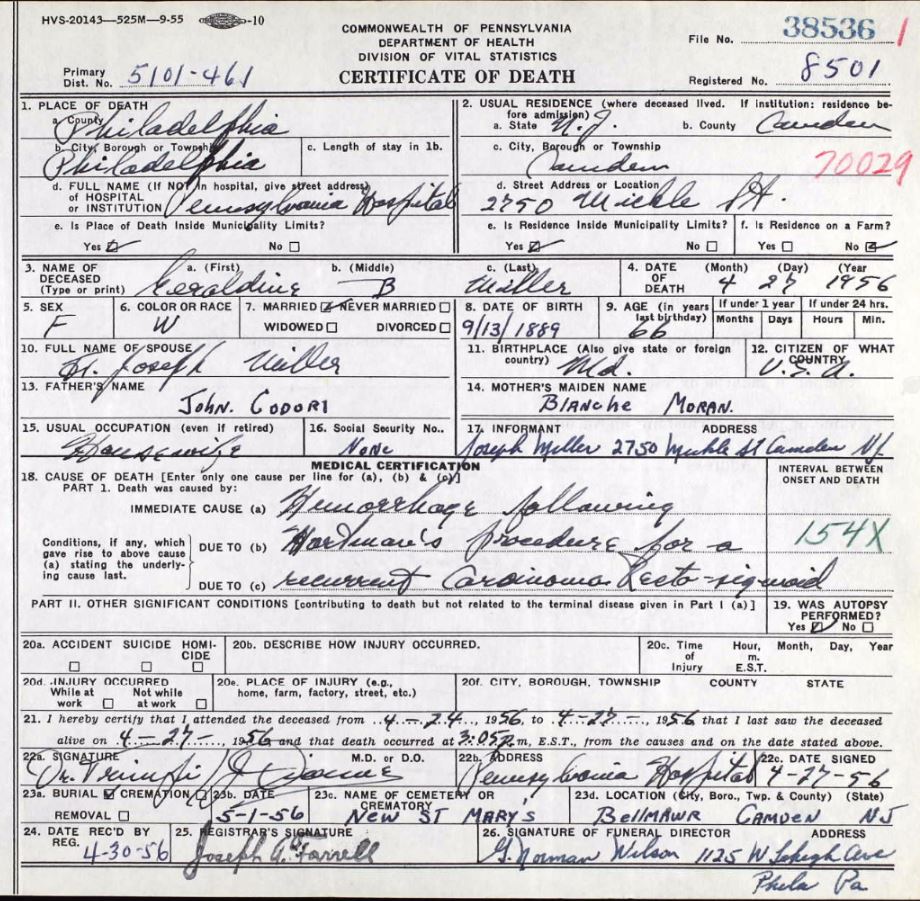 HVS-20143—525M—9-55 -10
COMMONWEALTH OF PENNSYLVANIA
DEPARTMENT OF HEALTH
DIVISION OF VITAL STATISTICS
CERTIFICATE OF DEATH
File No. 38536 1
Primary Dist. No. 5101-461
Registered No. 8501
1. PLACE OF DEATH
a. County Philadelphia
b. City, Borough or Township Philadelphia
c. Length of stay in 1b.
d. FULL NAME (If NOT in hospital, give street address) of HOSPITAL or INSTITUTION Pennsylvania Hospital
e. Is Place of Death Inside Municipality Limits?
Yes ☑ No ☐
2. USUAL RESIDENCE (where deceased lived. If institution: residence before admission)
a. State N.J. b. County Camden
c. City, Borough or Township Camden
70029
d. Street Address or Location 2750 Mickle St.
e. Is Residence Inside Municipality Limits? f. Is Residence on a Farm?
Yes ☑ No ☐ Yes ☐ No ☑
3. NAME OF DECEASED (Type or print) a. (First) Geraldine b. (Middle) B c. (Last) Miller
4. DATE OF DEATH (Month) (Day) (Year) 4 27 1956
5. SEX F
6. COLOR OR RACE W
7. MARRIED ☑ NEVER MARRIED ☐
WIDOWED ☐ DIVORCED ☐
8. DATE OF BIRTH 9/13/1889
9. AGE (in years last birthday) 66
If under 1 year Months Days
If under 24 hrs. Hours Min.
10. FULL NAME OF SPOUSE Joseph Miller
11. BIRTHPLACE (Also give state or foreign country) Md.
12. CITIZEN OF WHAT COUNTRY? U.S.A.
13. FATHER'S NAME
JOHN. CODORI
14. MOTHER'S MAIDEN NAME
BLANCHE MORAN.
15. USUAL OCCUPATION (even if retired) Housewife
16. Social Security No.. NONE
17. INFORMANT ADDRESS
Joseph Miller 2750 Mickle St Camden NJ
MEDICAL CERTIFICATION
18. CAUSE OF DEATH [Enter only one cause per line for (a), (b) & (c)]
INTERVAL BETWEEN ONSET AND DEATH
PART 1. Death was caused by:
IMMEDIATE CAUSE (a) Hemorrhage following
Conditions, if any, which gave rise to above cause (a) stating the underlying cause last.
DUE TO (b) Hartman's Procedure for a
154X
DUE TO (c) recurrent Carcinoma Recto-sigmoid
PART II. OTHER SIGNIFICANT CONDITIONS [contributing to death but not related to the terminal disease given in Part I (a)]
19. WAS AUTOPSY PERFORMED?
Yes ☑ No ☐
20a. ACCIDENT SUICIDE HOMICIDE
☐ ☐ ☐
20b. DESCRIBE HOW INJURY OCCURRED.
20c. Time of Injury Hour, Month, Day, Year
m. E.S.T.
20d. INJURY OCCURRED
While at work ☐ Not while at work ☐
20e. PLACE OF INJURY (e.g., home, farm, factory, street, etc.)
20f. CITY, BOROUGH, TOWNSHIP COUNTY STATE
21. I hereby certify that I attended the deceased from 4-24, 1956, to 4-27-, 1956 that I last saw the deceased
alive on 4-27-, 1956 and that death occurred at 3:05 P.m, E.S.T., from the causes and on the date stated above.
22a. SIGNATURE M.D. or D.O.
Dr.
22b. ADDRESS Pennsylvania Hospital
22c. DATE SIGNED 4-27-56
23a. BURIAL ☑ CREMATION ☐
REMOVAL ☐
23b. DATE 5-1-56
23c. NAME OF CEMETERY OR CREMATORY
NEW ST MARY'S
23d. LOCATION (City, Boro., Twp. & County) (State)
BELLMAWR CAMDEN NJ
24. DATE REC'D BY REG. 4-30-56
25. REGISTRAR'S SIGNATURE
Joseph A. Farrell
26. SIGNATURE OF FUNERAL DIRECTOR ADDRESS
G. Norman Wilson 1125 W Lehigh Ave
Phila Pa